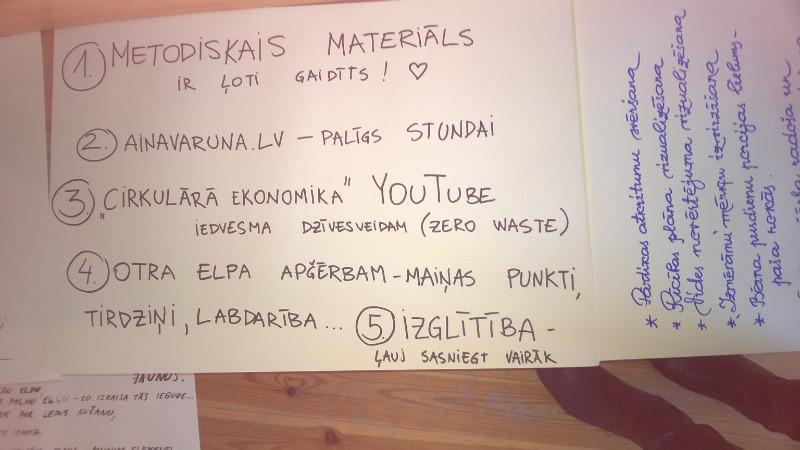 1. METODISKAIS MATERIĀLS
IR ĻOTI GAIDĪTS! ♡
2. AINAVARUNA.LV – PALĪGS STUNDAI
3. "CIRKULĀRĀ EKONOMIKA" YOUTUBE
IEDVESMA DZĪVESVEIDAM (ZERO WASTE)
4. OTRA ELPA APĢĒRBAM – MAIŅAS PUNKTI,
TIRDZIŅI, LABDARĪBA... 5. IZGLĪTĪBA –
ĻAUJ SASNIEGT VAIRĀK
* Pārtikas atkritumu svēršana
* Rīcības plāna vizualizēšana
* Vides novērtējuma vizualizēšana
* Izmērāmu mērķu izvirzīšana
* Bērna pusdienu porcijas lielums –
paša rokās.
radoša un
JAUNUS.
PALMU EĻĻU – KO IZRAISA TĀS IEGUVE...
PAR LEDUS KUŠANU,